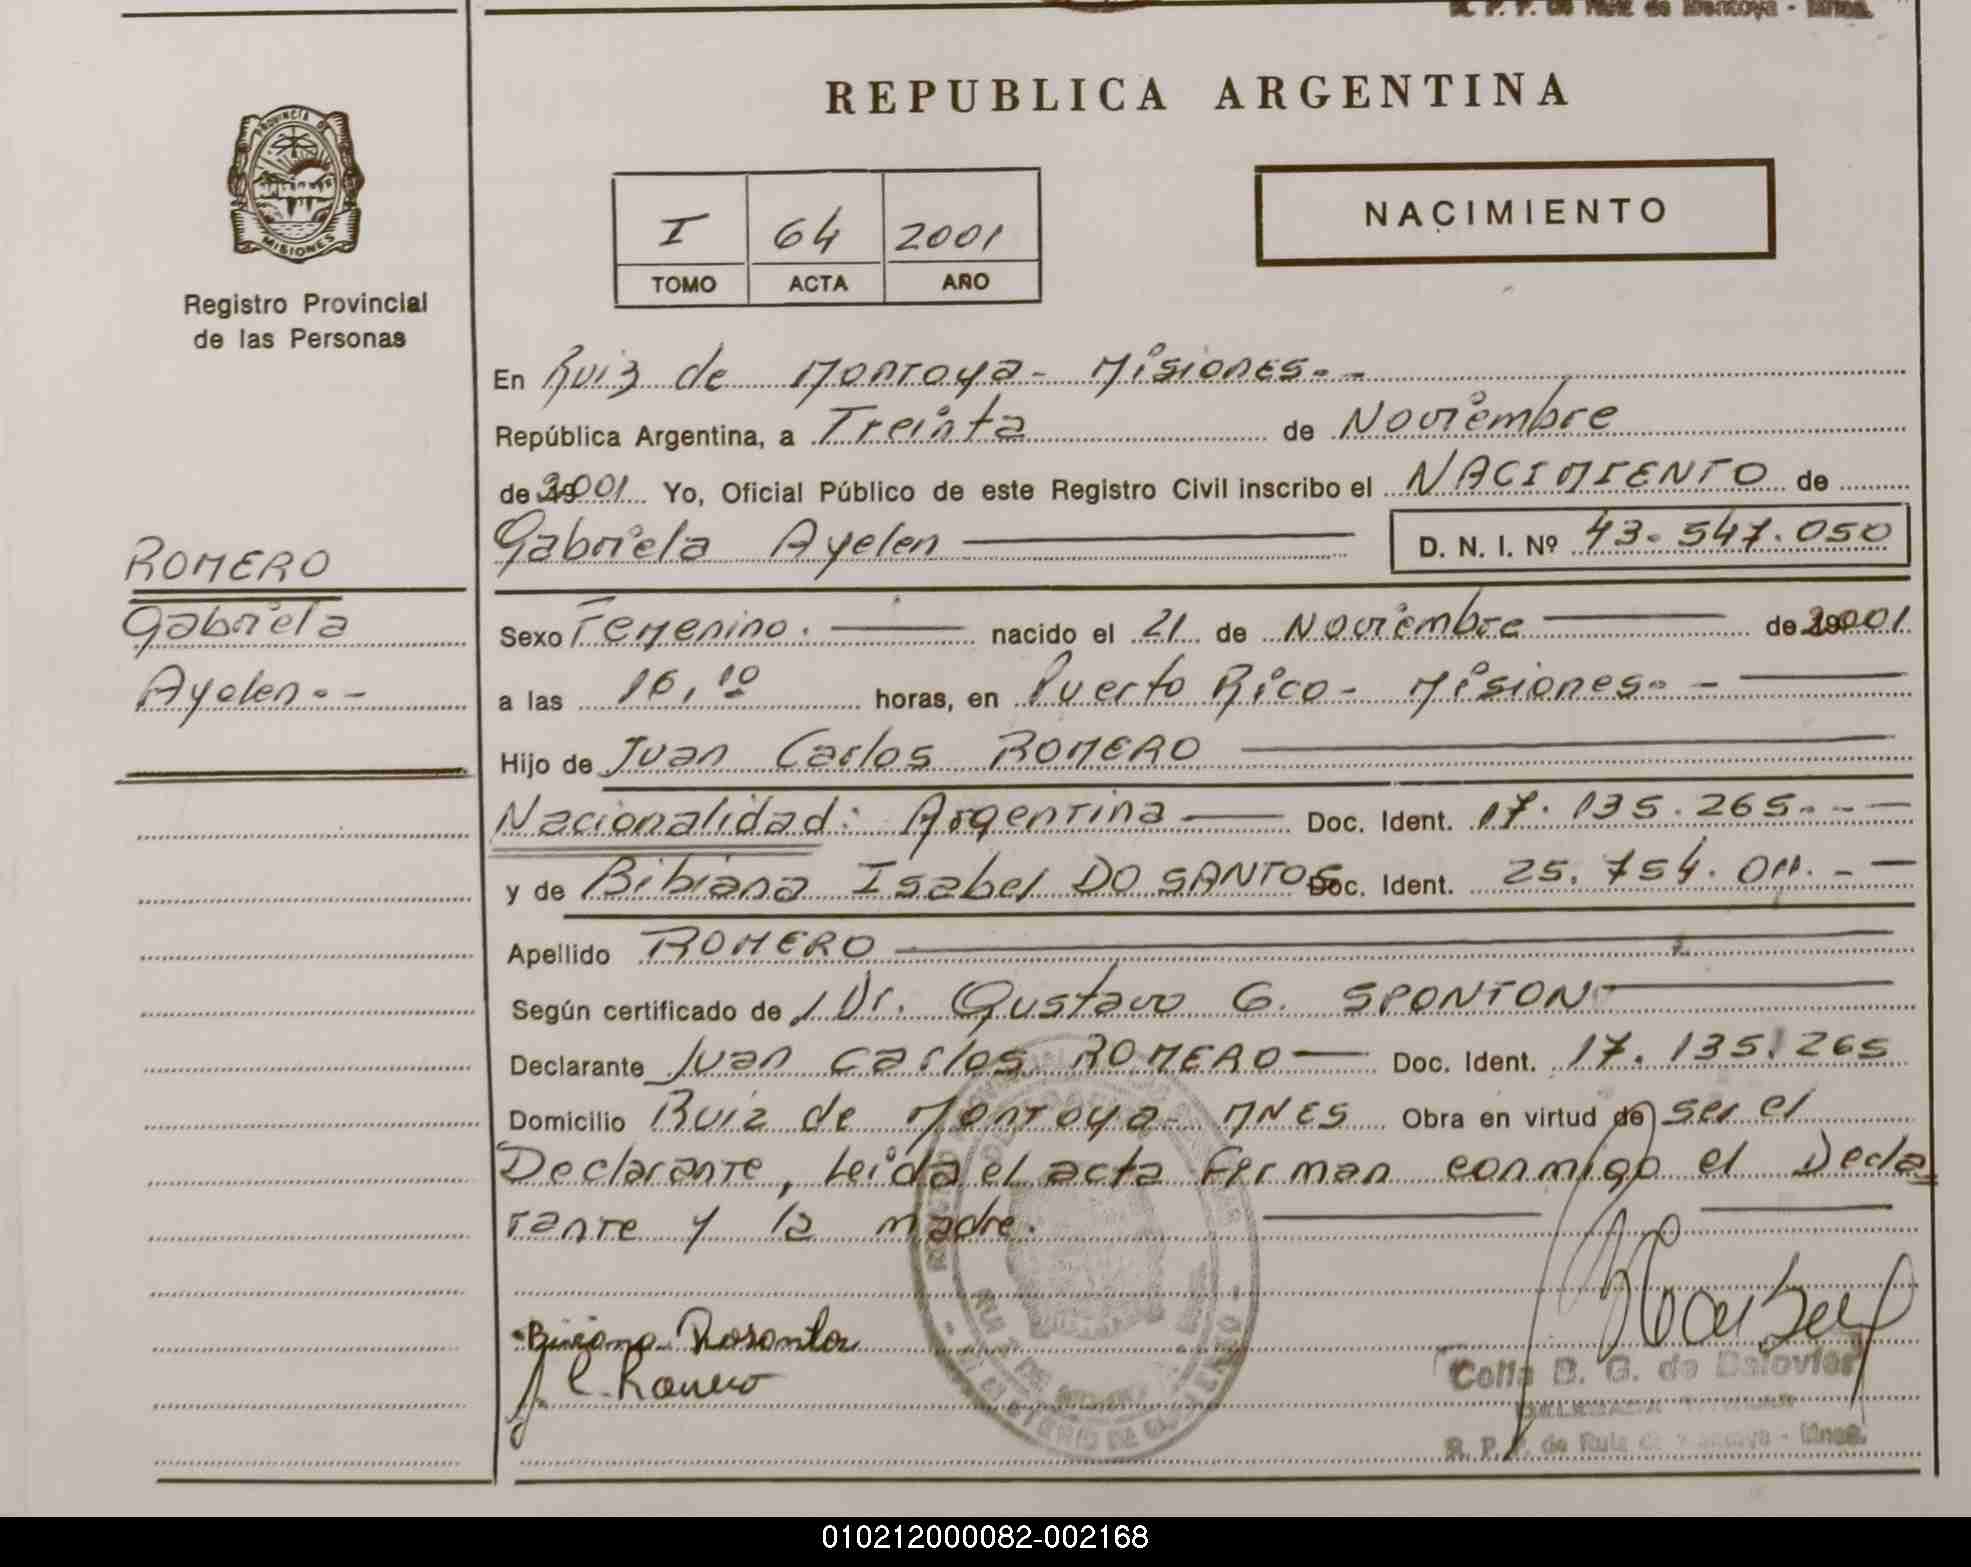 R. P. P. de Ruiz de Montoya - Mnes.
REPUBLICA ARGENTINA
PROVINCIA DE
MISIONES
Registro Provincial
de las Personas
I 64 2001
TOMO ACTA AÑO
NACIMIENTO
En Ruiz de Montoya - Misiones.-
República Argentina, a Treinta de Noviembre
de 2001 Yo, Oficial Público de este Registro Civil inscribo el NACIMIENTO de
Gabriela Ayelen D. N. I. Nº 43.547.050
ROMERO
Gabriela
Ayelen.-
Sexo Femenino. nacido el 21 de Noviembre de 2001
a las 16,10 horas, en Puerto Rico - Misiones.-
Hijo de Juan Carlos ROMERO
Nacionalidad: Argentina Doc. Ident. 17.135.265.--
y de Bibiana Isabel DO SANTOS Doc. Ident. 25.754.011.-
Apellido ROMERO
Según certificado de Dr. Gustavo G. SPONTON
Declarante Juan Carlos ROMERO Doc. Ident. 17.135.265
Domicilio Ruiz de Montoya - MNES Obra en virtud de ser el
Declarante, Leida el acta Firman conmigo el Decla
rante y la madre.
J. C. Romero
Celia B. G. de
R. P. P. de Ruiz de Montoya - Mnes.
MINISTERIO DE GOBIERNO
010212000082-002168